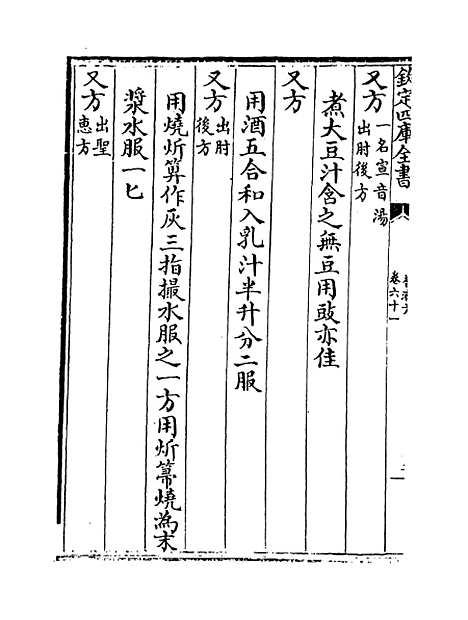 欽定四庫全書
卷六十一
又方一名宣音湯出肘後方
煮大豆汁含之無豆用豉亦佳
又方
用酒五合和入乳汁半升分二服
又方出肘後方
用燒炘箅作灰三指撮水服之一方用炘箒燒為末
漿水服一匕
又方出聖惠方